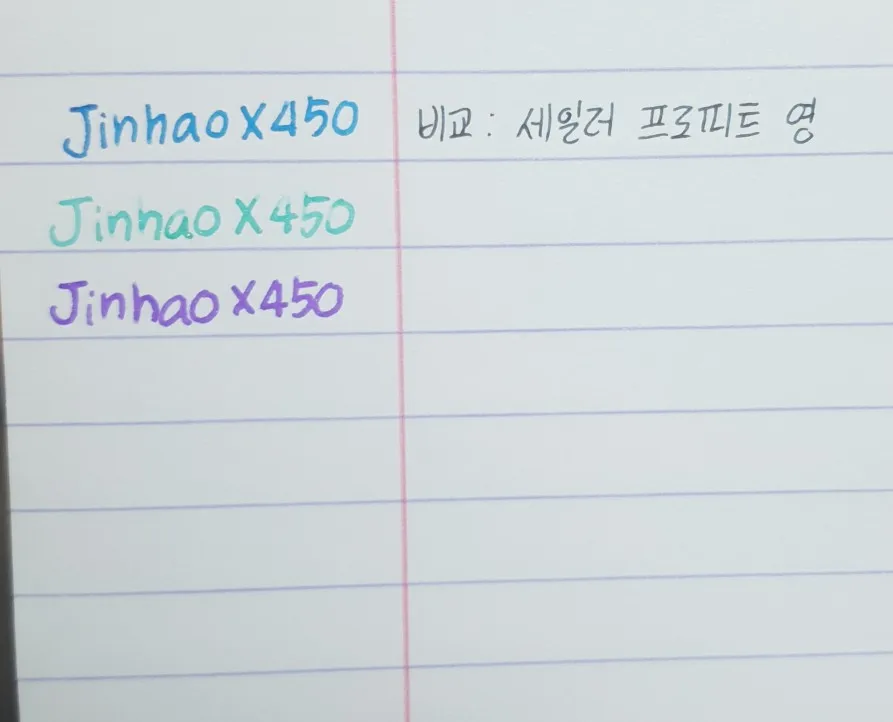 Jinhao X450 비교: 세일러 프로피트 영
Jinhao X450
Jinhao X450